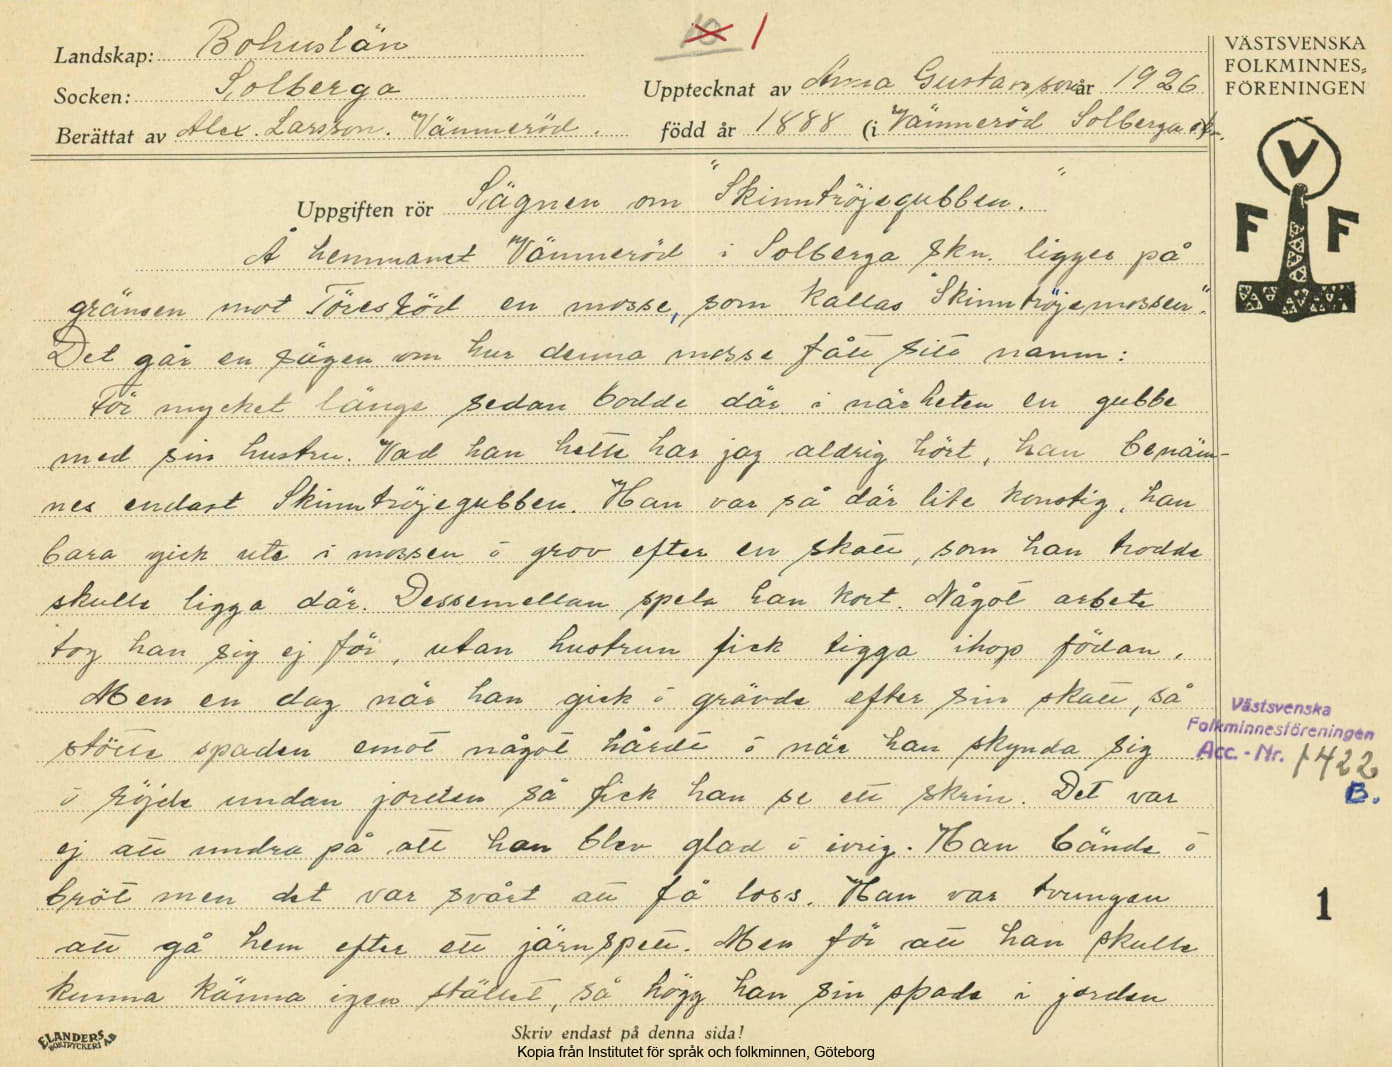 Landskap: Bohuslän
Socken: Solberga
Berättat av Alex. Larsson. Vämmeröd.
1
Upptecknat av Anna Gustavsson år 1926
född år 1888 (i Vämmeröd Solberga
VÄSTSVENSKA
FOLKMINNES-
FÖRENINGEN
V
F F
Uppgiften rör Sägnen om "Skinntröjegubben."
Å hemmanet Vämmeröd i Solberga skn. ligger på
gränsen mot Töresröd en mosse, som kallas "Skinntröjemossen".
Det går en sägen om hur denna mosse fått sitt namn:
För mycket länge sedan bodde där i närheten en gubbe
med sin hustru. Vad han hette har jag aldrig hört, han benäm-
nes endast Skinntröjegubben. Han var så där lite konstig, han
bara gick ute i mossen ó grov efter en skatt, som han trodde
skulle ligga där. Dessemellan spela han kort. Något arbete
tog han sig ej för, utan hustrun fick tigga ihop födan.
Men en dag när han gick ó grävde efter sin skatt, så
stötte spaden emot något hårdt ó när han skynda sig
ó röjde undan jorden så fick han se ett skrin. Det var
ej att undra på att han blev glad ó ivrig. Han bände ó
bröt men det var svårt att få loss. Han var tvungen
att gå hem efter ett järnspett. Men för att han skulle
kunna känna igen stället, så högg han sin spade i jorden
Västsvenska
Folkminnesföreningen
Acc.-Nr. 1422
B.
1
ELANDERS
BOKTRYCKERI AB
Skriv endast på denna sida!
Kopia från Institutet för språk och folkminnen, Göteborg